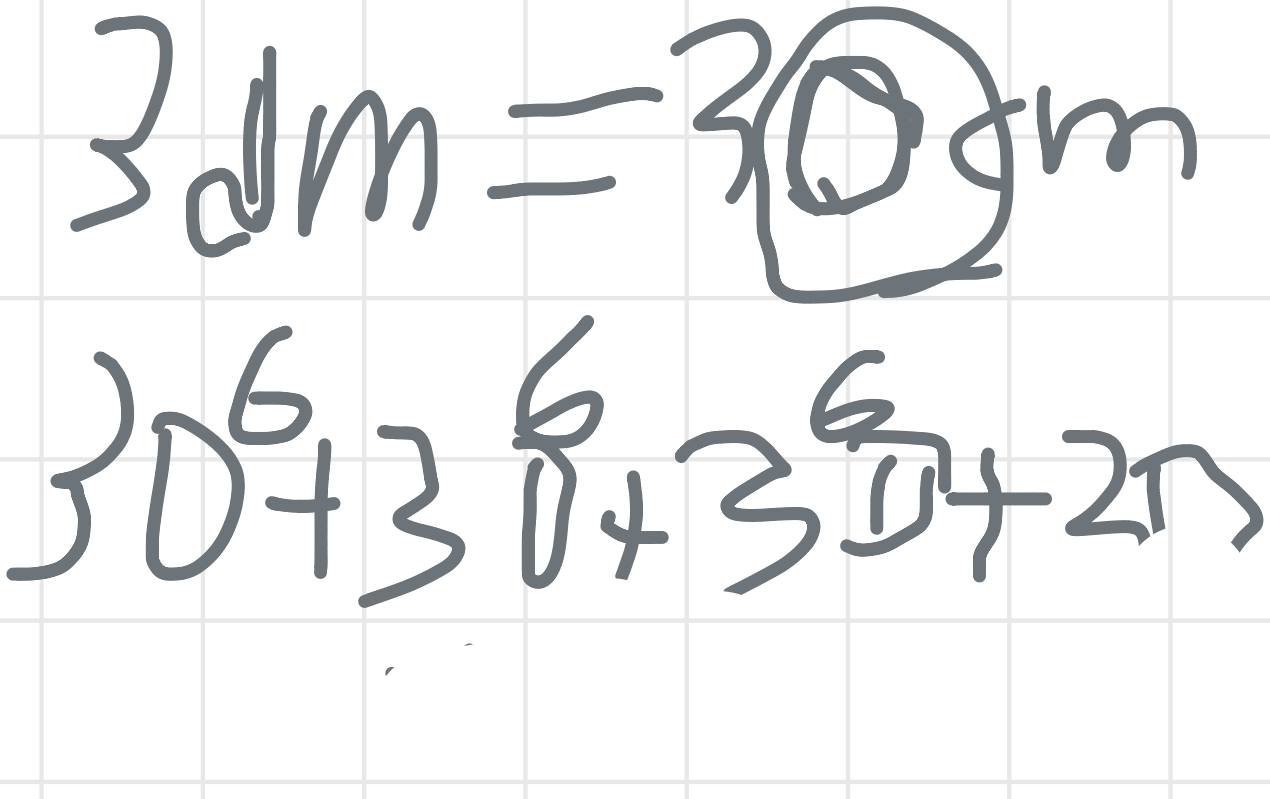 3dm = 30cm
30⁶+30⁶+30⁶+2